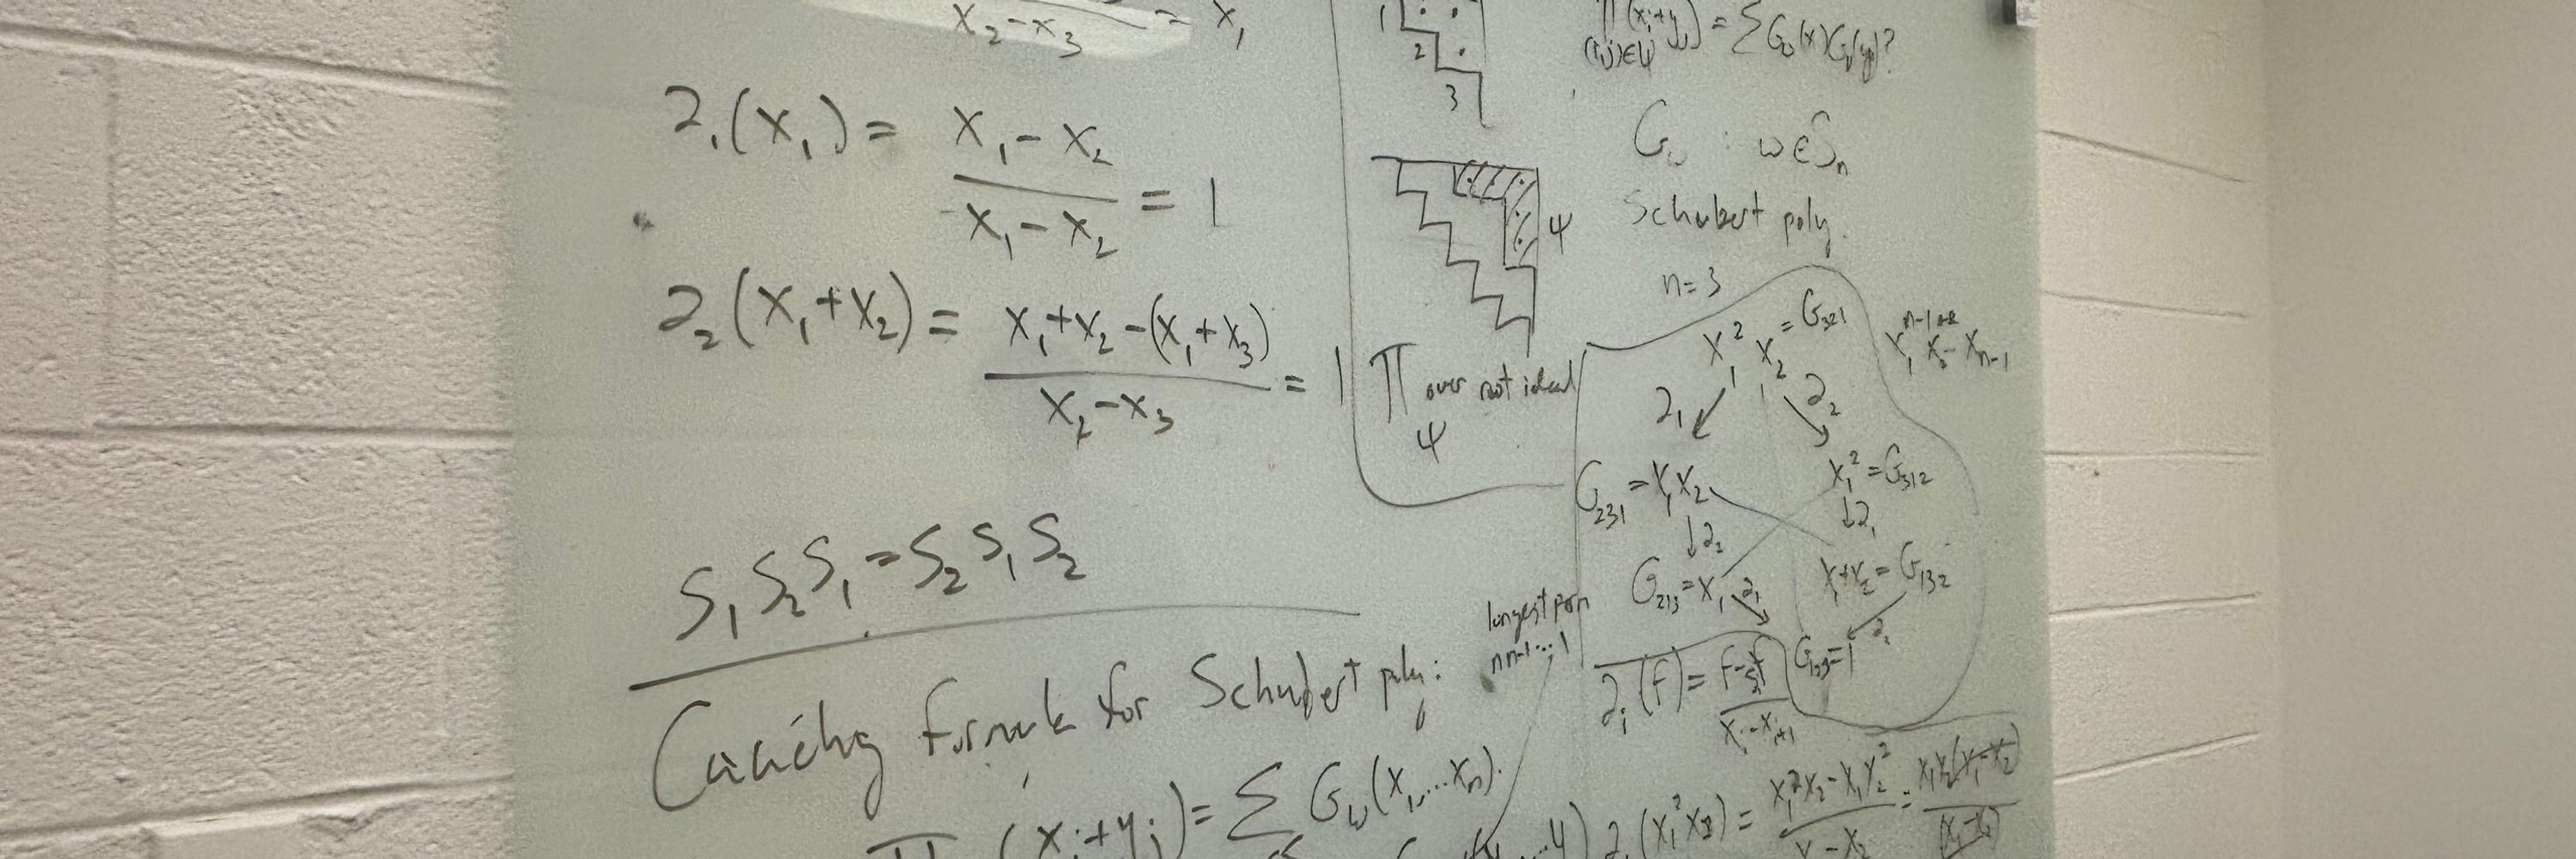 x₂-x₃ = x₁
∂₁(x₁) = (x₁-x₂)/(x₁-x₂) = 1
∂₂(x₁+x₂) = (x₁+x₂-(x₁+x₃))/(x₂-x₃) = 1
S₁S₂S₁=S₂S₁S₂
Cauchy formula for Schubert poly:
∏ (xᵢ+yⱼ) = ∑ G_w(x₁,...xₙ)·
1
2
3
ψ
∏ over root ideal
ψ
∏ (xᵢ+yⱼ) = ∑G_w(x)G_v(y)?
(i,j)∈ψ
G_w : w∈Sₙ
Schubert poly.
n=3
x₁²x₂ = G₃₂₁
∂₁ ∂₂
G₂₃₁ = x₁x₂
x₁² = G₃₁₂
↓∂₂
↓∂₁
G₂₁₃ = x₁
x₁+x₂ = G₁₃₂
∂₁
∂₂
G₁₂₃=1
longest perm
n n-1 ... 1
∂ᵢ(f) = (f-sᵢf)/(xᵢ-xᵢ₊₁)
∂₁(x₁²x₂) = (x₁²x₂-x₁x₂²)/(x₁-x₂) = x₁x₂(x₁-x₂)/(x₁-x₂)